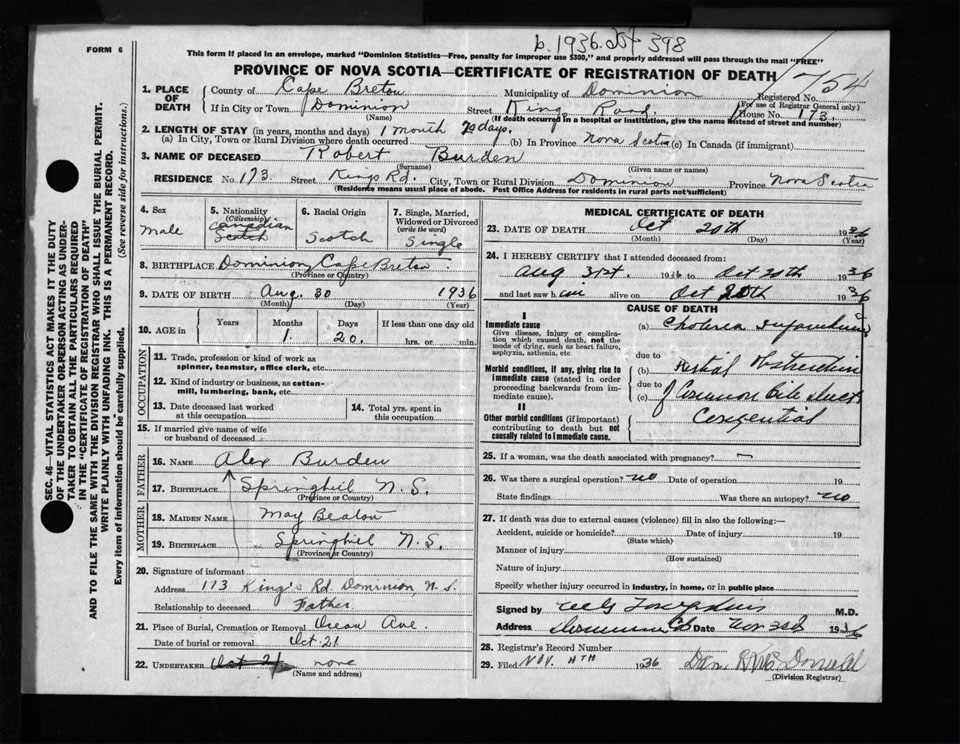 b. 1936. 398
FORM 6
This form if placed in an envelope, marked "Dominion Statistics—Free, penalty for improper use $300," and properly addressed will pass through the mail "FREE"
PROVINCE OF NOVA SCOTIA—CERTIFICATE OF REGISTRATION OF DEATH
1754
1. PLACE OF DEATH
County of Cape Breton Municipality of Dominion Registered No.
(For use of Registrar General only)
If in City or Town Dominion Street King's Road. House No. 173.
(Name) (If death occurred in a hospital or institution, give the name instead of street and number)
2. LENGTH OF STAY (in years, months and days) 1 month 20 days.
(a) In City, Town or Rural Division where death occurred (b) In Province Nova Scotia (c) In Canada (if immigrant)
3. NAME OF DECEASED Robert Burden
(Surname) (Given name or names)
RESIDENCE No. 173 Street Kings Rd. City, Town or Rural Division Dominion Province Nova Scotia
(Residence means usual place of abode. Post Office Address for residents in rural parts not sufficient)
4. Sex
male
5. Nationality
(Citizenship)
Canadian
Scotch
6. Racial Origin
Scotch
7. Single, Married, Widowed or Divorced
(write the word)
Single
8. BIRTHPLACE Dominion, Cape Breton.
(Province or Country)
9. DATE OF BIRTH Aug. 30 1936
(Month) (Day) (Year)
10. AGE in
Years Months Days If less than one day old
1. 20. hrs. or min.
OCCUPATION
11. Trade, profession or kind of work as spinner, teamster, office clerk, etc.
12. Kind of industry or business, as cotton-mill, lumbering, bank, etc.
13. Date deceased last worked at this occupation
14. Total yrs. spent in this occupation
15. If married give name of wife or husband of deceased
FATHER
16. NAME Alex Burden
17. BIRTHPLACE Springhil N.S.
(Province or Country)
MOTHER
18. MAIDEN NAME May Beaton
19. BIRTHPLACE Springhil N.S.
(Province or Country)
20. Signature of informant
Address 173 King's Rd. Dominion, N.S.
Relationship to deceased Father
21. Place of Burial, Cremation or Removal Ocean Ave.
Date of burial or removal Oct 21
22. UNDERTAKER Oct 21 none
(Name and address)
MEDICAL CERTIFICATE OF DEATH
23. DATE OF DEATH Oct 20th 1936
(Month) (Day) (Year)
24. I HEREBY CERTIFY that I attended deceased from:
Aug 1936 to Oct 20th 1936
and last saw h im alive on Oct 20th 1936
CAUSE OF DEATH
I
Immediate cause
Give disease, injury or complication which caused death, not the mode of dying, such as heart failure, asphyxia, asthenia, etc
(a) Cholerea Infantum
due to
Morbid conditions, if any, giving rise to immediate cause (stated in order proceeding backwards from immediate cause).
(b) Partial Obstruction
due to
(c) Common bile duct
II
Other morbid conditions (if important) contributing to death but not causally related to immediate cause.
Congenital
25. If a woman, was the death associated with pregnancy?
26. Was there a surgical operation? no Date of operation 19
State findings Was there an autopsy? no
27. If death was due to external causes (violence) fill in also the following:—
Accident, suicide or homicide? Date of injury 19
(State which)
Manner of injury
(How sustained)
Nature of injury
Specify whether injury occurred in industry, in home, or in public place
Signed by M.D.
Address Dominion CB Date Nov 3rd 1936
28. Registrar's Record Number
29. Filed NOV. 4TH 1936 Dan R McDonald
(Division Registrar)
SEC. 46—VITAL STATISTICS ACT MAKES IT THE DUTY
OF THE UNDERTAKER OR PERSON ACTING AS UNDER-
TAKER TO OBTAIN ALL THE PARTICULARS REQUIRED
IN THE "CERTIFICATE OF REGISTRATION OF DEATH"
AND TO FILE THE SAME WITH THE DIVISION REGISTRAR WHO SHALL ISSUE THE BURIAL PERMIT.
WRITE PLAINLY WITH UNFADING INK. THIS IS A PERMANENT RECORD.
Every item of information should be carefully supplied. (See reverse side for instructions.)